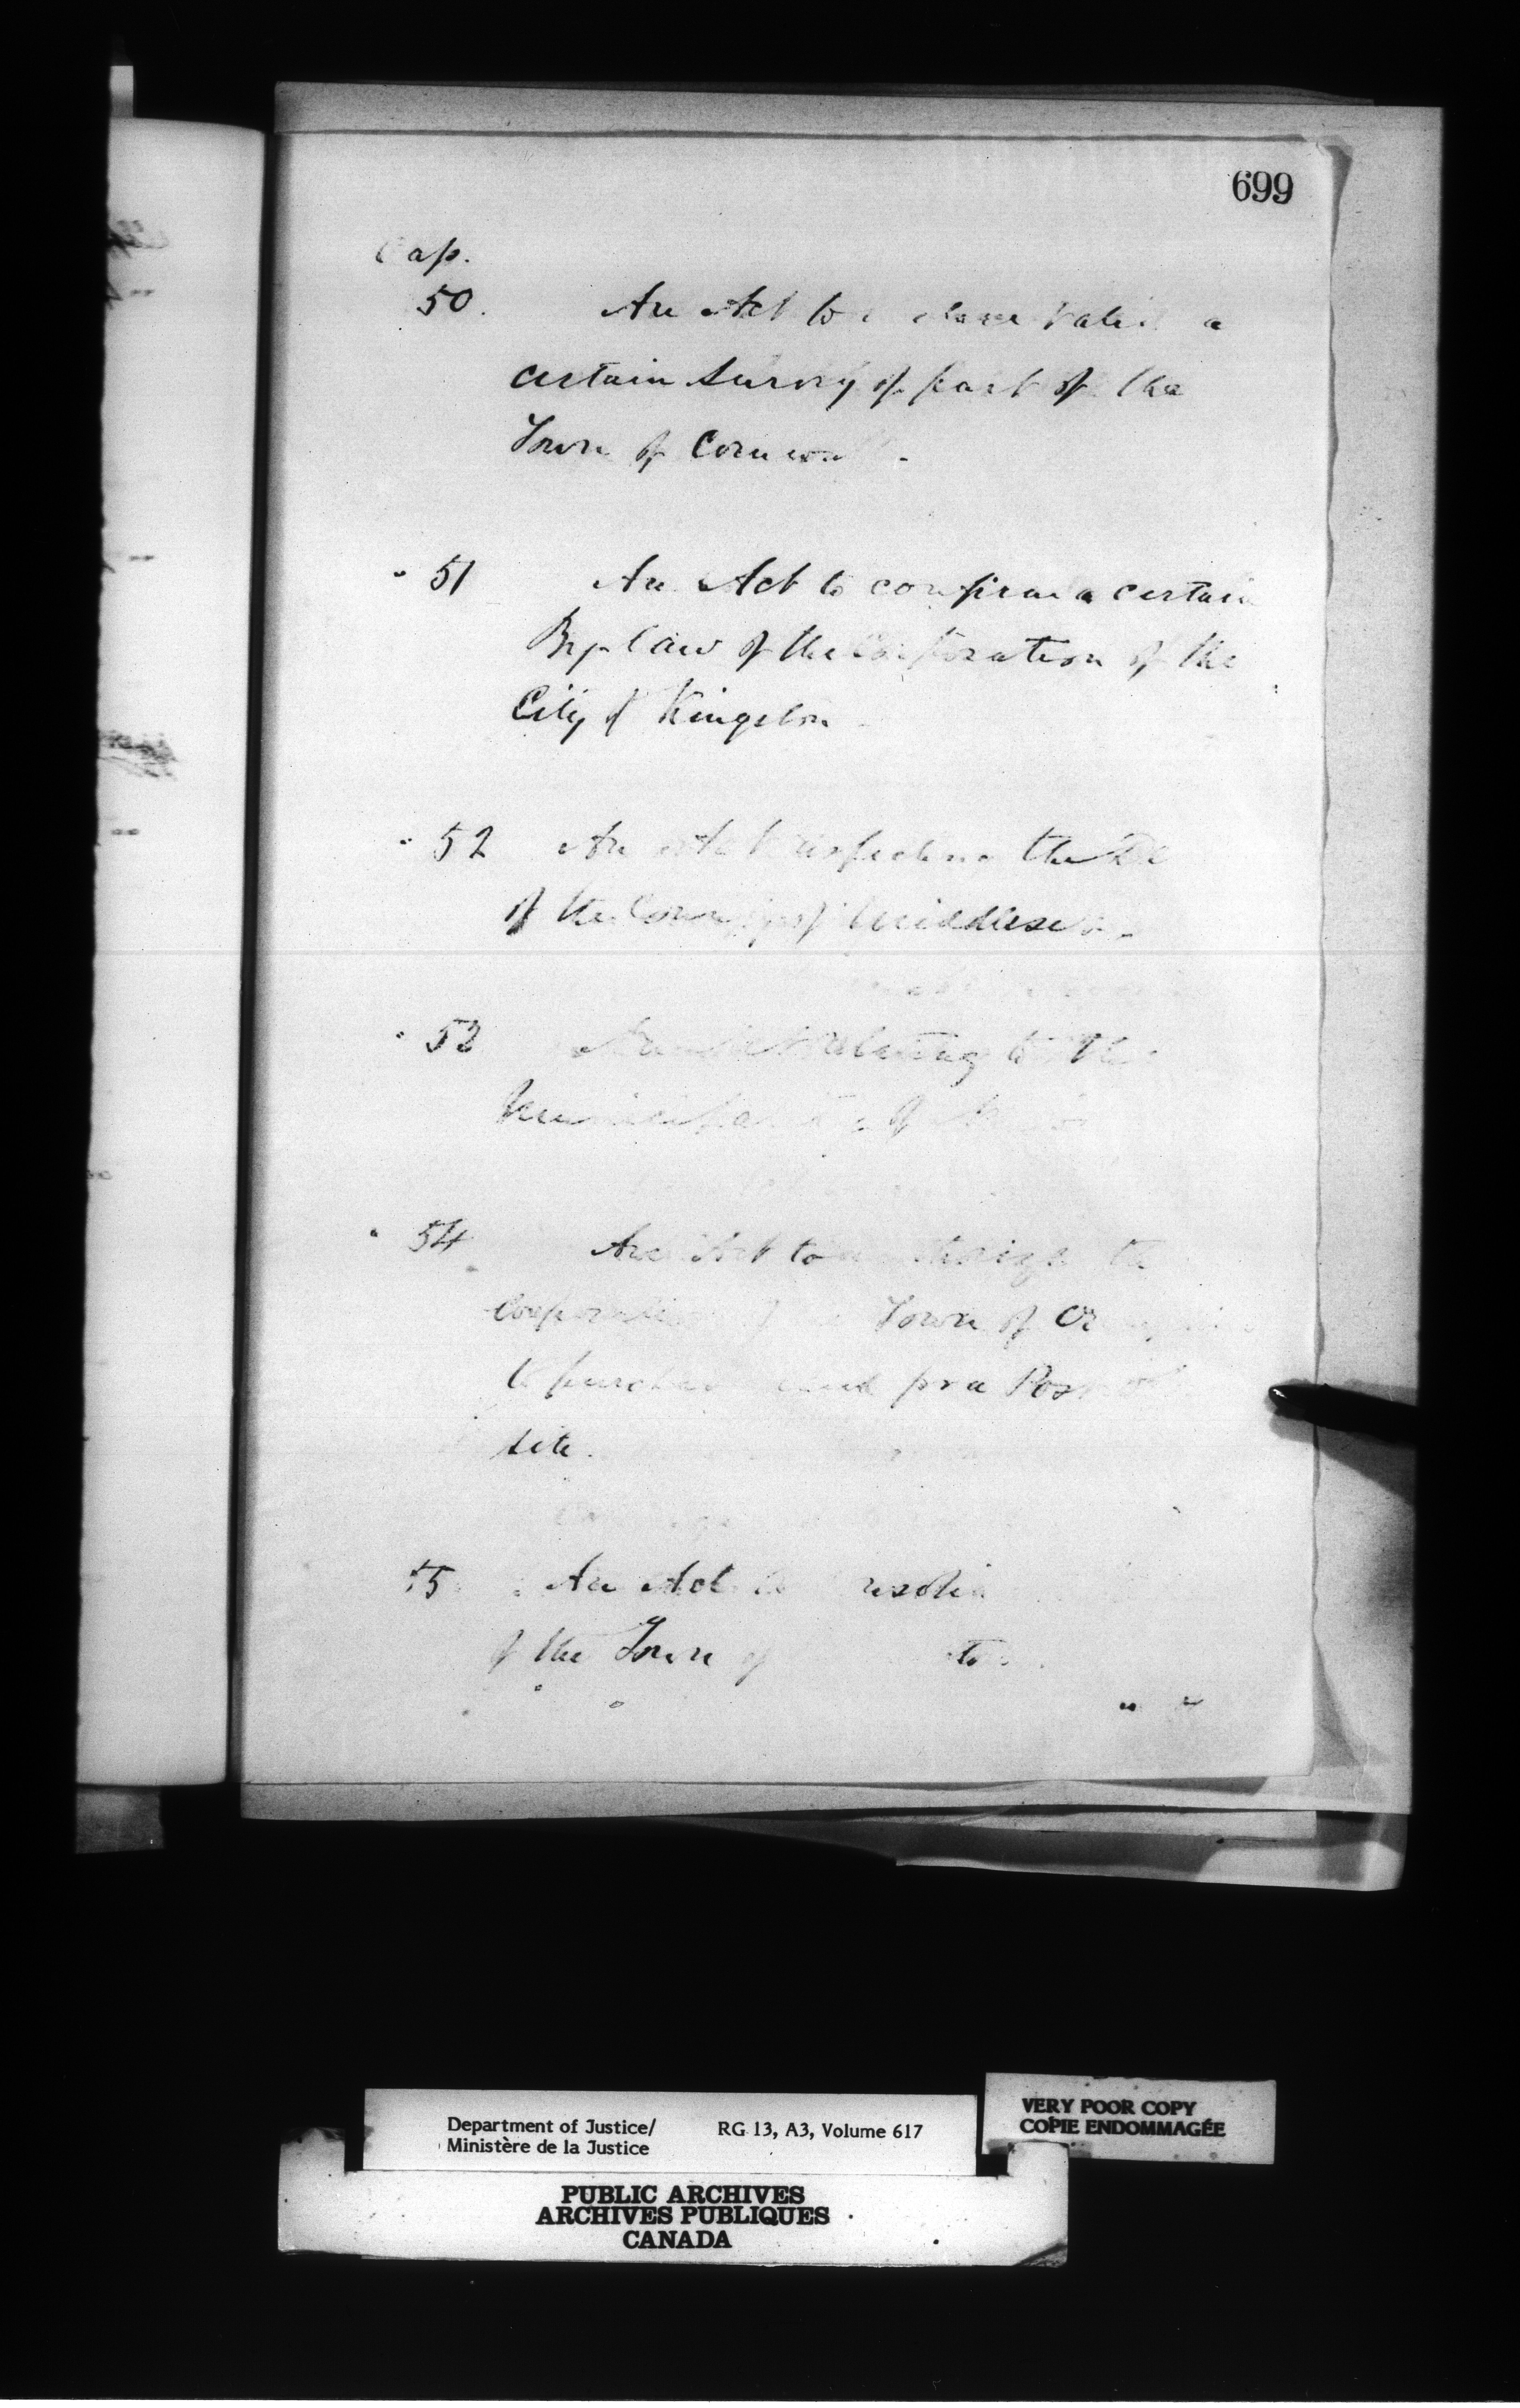 699
Cap.
50. An Act to declare valid a
certain Survey of part of the
Town of Cornwall -
" 51 An Act to confirm a certain
By-law of the Corporation of the
City of Kingston
" 52 An Act respecting the De
of the County of Middlesex.
" 53 An Act relating to the
Municipality of
" 54 An Act to authorize the
Corporation of the Town of
to purchase land for a Post
site.
55 An Act to
of the Town of
" "
Department of Justice/ RG 13, A3, Volume 617
Ministère de la Justice
VERY POOR COPY
COPIE ENDOMMAGÉE
PUBLIC ARCHIVES
ARCHIVES PUBLIQUES
CANADA